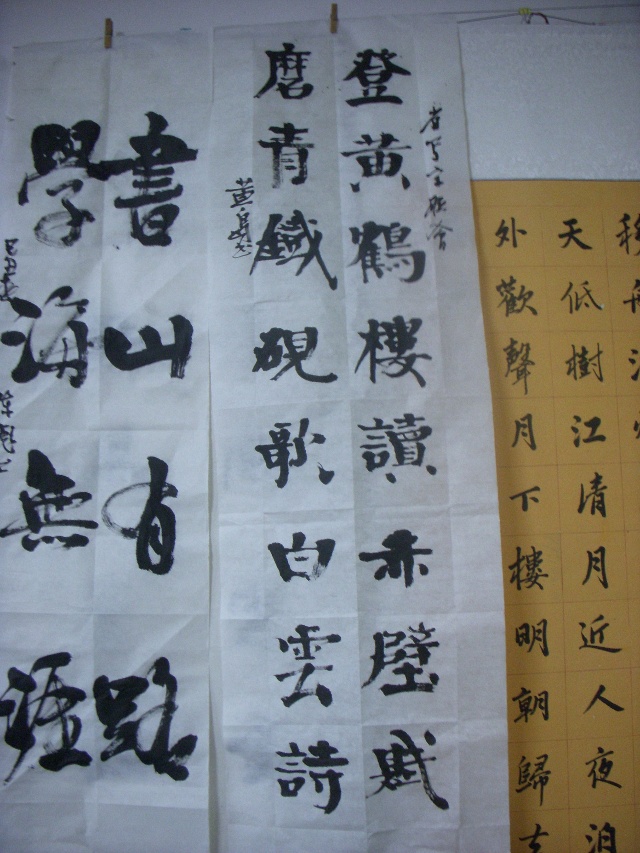 移舟
天低樹江清月近人夜泊
外歡聲月下樓明朝歸去
登黄鶴樓讀赤壁賦
磨青鐵硯歌白雲詩
書山有路
學海無涯